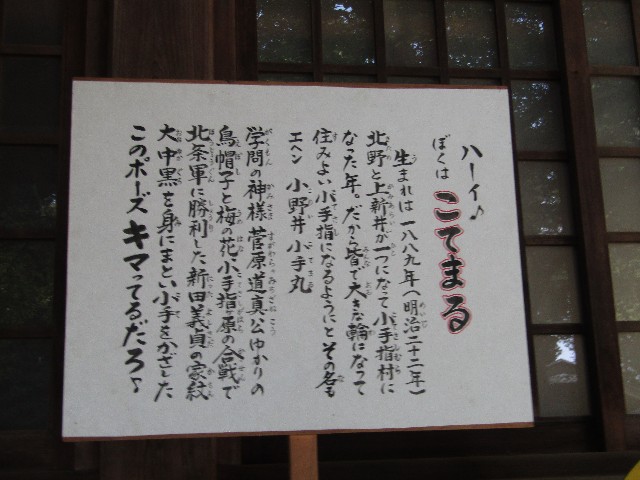 ハーイ♪
ぼくは こてまる
生まれは一八八九年(明治二十二年)
北野と上新井が一つになって小手指村に
なった年。だから皆で大きな輪になって
住みよい小手指になるようにと その名も
エヘン 小野井 小手丸
学問の神様 菅原道真公ゆかりの
烏帽子と梅の花 小手指ヶ原の合戦で
北条軍に勝利した新田義貞の家紋
大中黒を身にまとい小手をかざした
このポーズ キマってるだろ♪